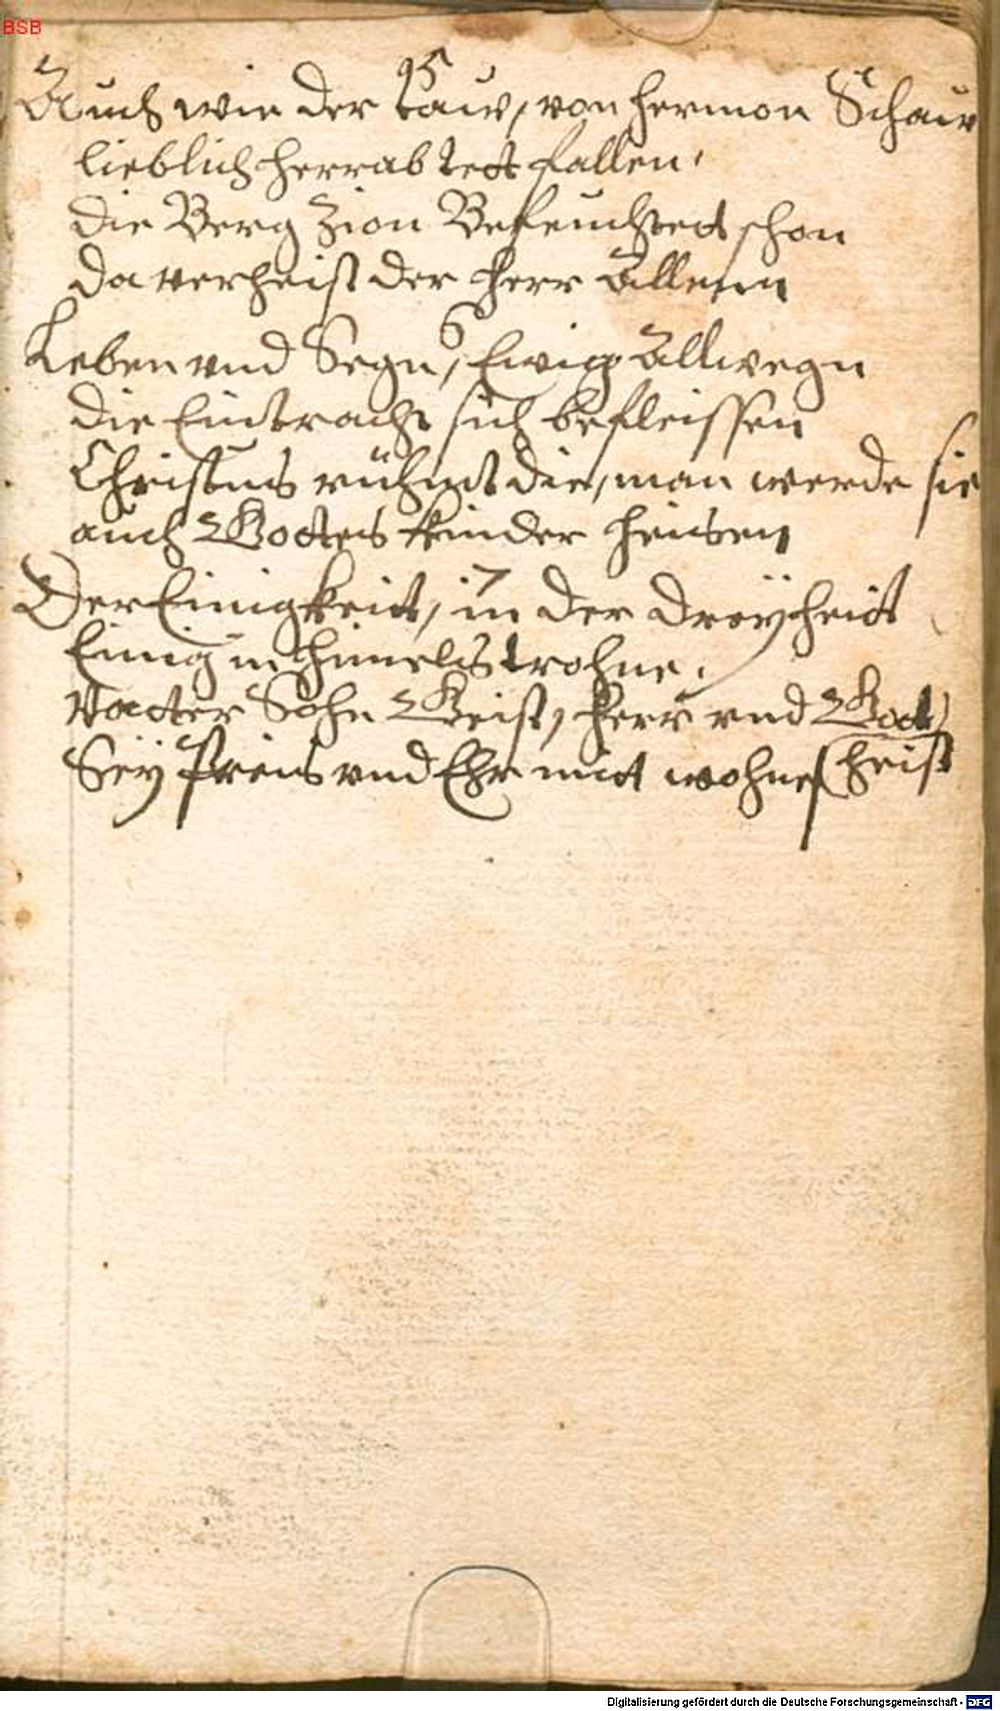 BSB
5
Auch wie der taw, von Hermon Schaw
lieblich herrab tett fallen,
die Berg Zion Befeuchtett schon
da verheist der Herr Allenn
6
Leben vnd Segn, Ewig Allwegn
die Eintracht sich befleissen
Christus rühmt die, man werde sie
auch Gottes kinder heissen
7
Der Einigkeit, in der dreÿheit
Einig in himels trohne,
Vatter Sohn Geist, Herr vnd Gott
heist
Seÿ Preis vnd Ehr mit wohne
Digitalisierung gefördert durch die Deutsche Forschungsgemeinschaft - DFG